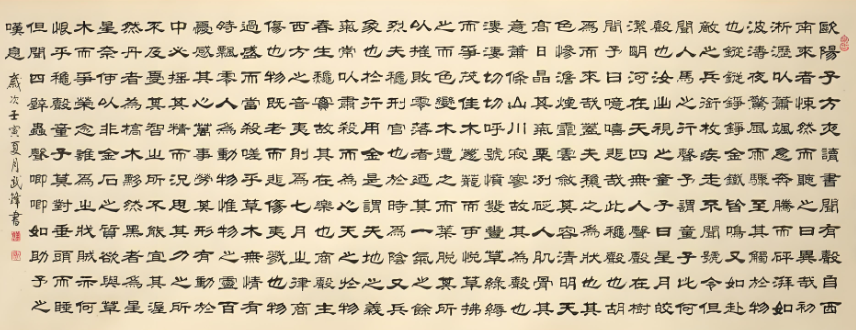 歐陽子方夜讀書聞有聲自西
南來者悚然而聽之曰異哉初
淅瀝以蕭颯忽奔騰而砰湃如
波濤夜驚風雨驟至其觸於物
也鏦鏦錚錚金鐵皆鳴又如赴
敵之兵銜枚疾走不聞號令但
聞人馬之行聲予謂童子此何
聲也汝出視之童子曰星月皎
潔明河在天四無人聲聲在樹
間予曰噫嘻悲哉此秋聲也胡
為而來哉蓋夫秋之為狀也其
色慘澹煙霏雲斂其容清明天
高日晶其氣栗冽砭人肌骨其
意蕭條山川寂寥故其為聲也
淒淒切切呼號憤發豐草綠縟
而爭茂佳木蔥蘢而可悅草拂
之而色變木遭之而葉脫其所
以摧敗零落者迺其一氣之餘
烈夫秋刑官也於時為陰又兵
象也於行用金是謂天地之義
氣常以肅殺而為心天之於物
春生秋實故其在樂也商聲主
西方之音夷則為七月之律商
傷也物既老而悲傷夷戮也物
過盛而當殺嗟乎草木無情有
時飄零人為動物惟物之靈百
憂感其心萬事勞其形有動於
中必搖其精而況思其力之所
不及憂其智之所不能宜其渥
然丹者為槁木黟然黑者為星
星奈何以非金石之質欲與草
木而爭榮念誰為之戕賊亦何
恨乎秋聲童子莫對垂頭而睡
但聞四壁蟲聲唧唧如助予之
嘆息
歲次壬寅夏月武書